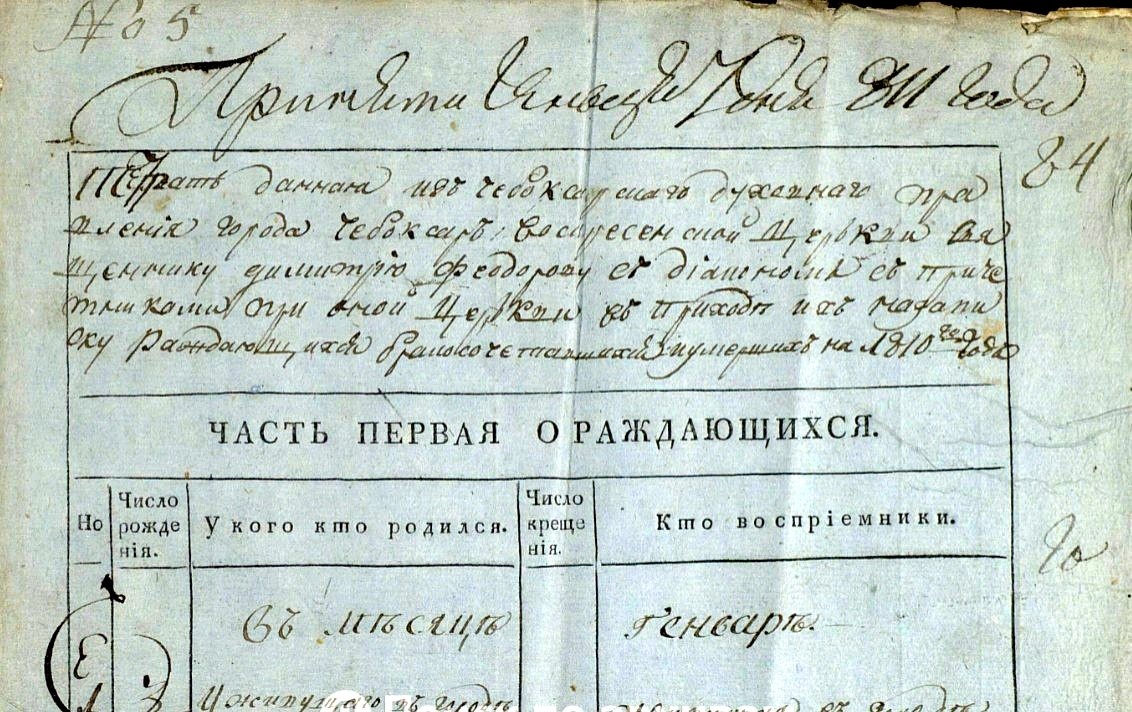 No 5
811 года
84
Тетрать данная изъ чебоксарскаго духовнаго пра
вленія города Чебоксаръ Воскресенской Церькви Свя
щеннику димитрію Феодорову съ діакономъ съ приче
тниками при оной Церькви въ приходѣ ихъ на запи
ску Раждающихся бракосочетавшихся и умершихъ на 1810 годъ
ЧАСТЬ ПЕРВАЯ О РАЖДАЮЩИХСЯ.
Но
Число рожде нія.
У кого кто родился.
Число креще нія.
Кто воспріемники.
го
Въ мѣсяцѣ
Генварѣ.